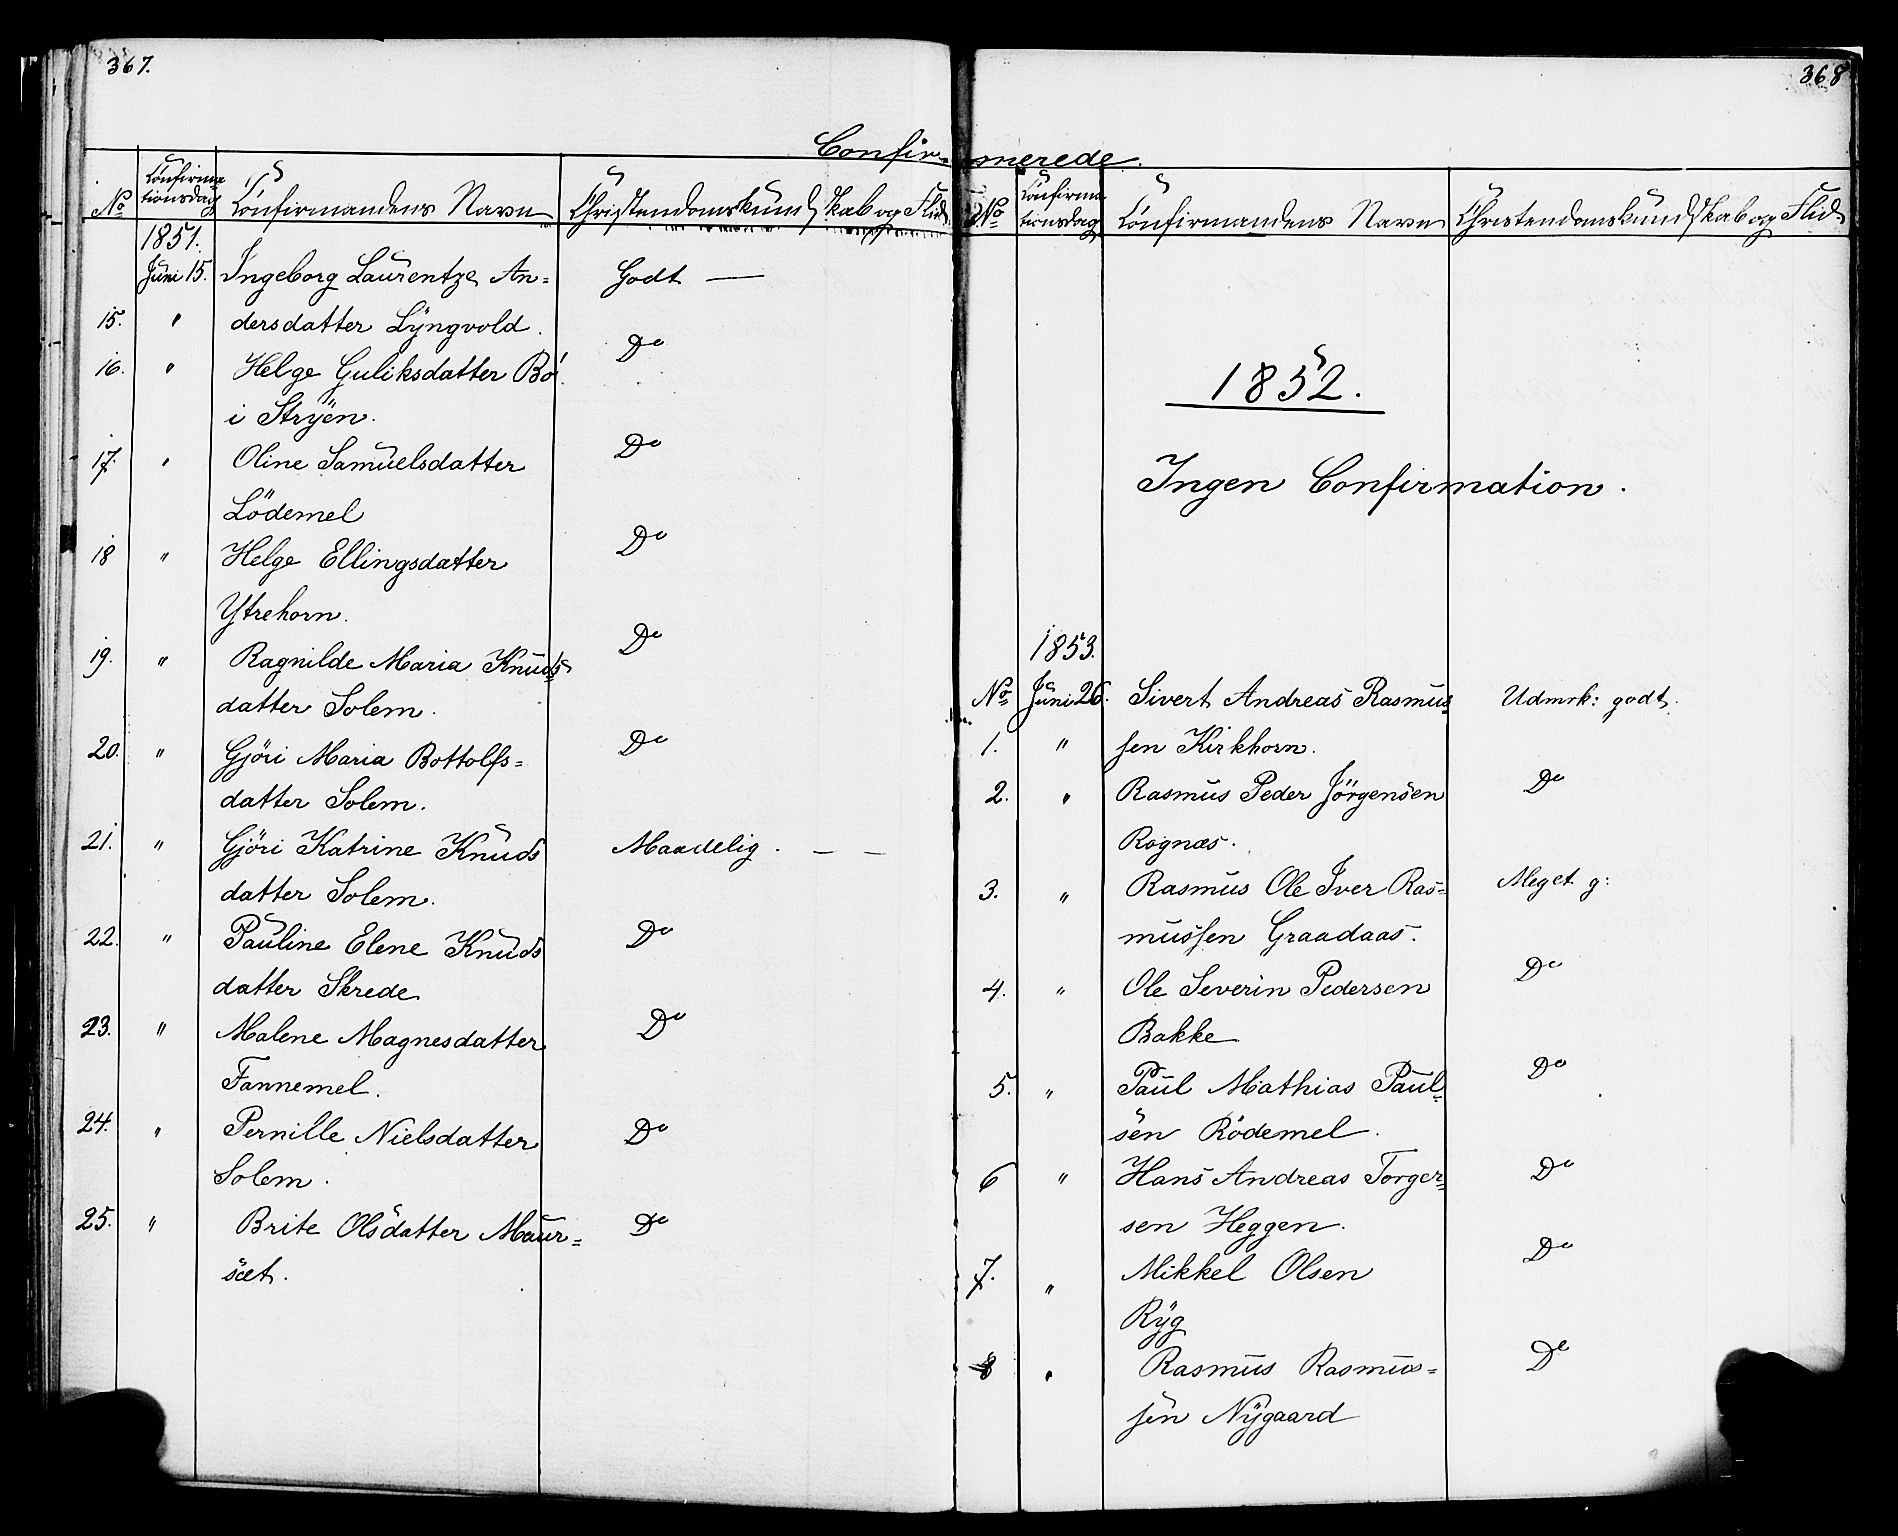 367.
Confir-
No
Confirma-
tionsdag
Confirmandens Navn
Christendomskundskab og Flid
1851.
Juni 15. Ingeborg Laurentze An= Godt —
15. " dersdatter Lyngvold.
16. " Helge Guliksdatter Bö Do
i Stryen.
17. " Oline Samuelsdatter Do
Lödemel
18 " Helge Ellingsdatter Do
Ytrehorn.
19. " Ragnilde Maria Knuds= Do
datter Solem.
20. " Gjöri Maria Bottolfs= Do
datter Solem.
21. " Gjöri Katrine Knuds Maadelig. — —
datter Solem.
22. " Pauline Elene Knuds Do
datter Skrede
23. " Malene Magnesdatter Do
Fannemel.
24. " Pernille Nielsdatter Do
Solem.
25. " Brite Olsdatter Maur= Do
sæt.
368
merede.
No
Confirma-
tionsdag
Confirmandens Navn
Christendomskundskab og Flid
1852.
Ingen Confirmation.
1853.
No Juni 26. Sivert Andreas Rasmus= Udmrk: godt.
1. " sen Kirkhorn.
2. " Rasmus Peder Jörgensen Do
Rognæs.
3. " Rasmus Ole Iver Ras= Meget g:
mussen Graadaas.
4. " Ole Severin Pedersen Do
Bakke
5. " Paul Mathias Paul= Do
sen Rödemel.
6 " Hans Andreas Torger= Do
sen Heggen.
7. " Mikkel Olsen Do
Ryg
8 " Rasmus Rasmus= Do
sen Nygaard